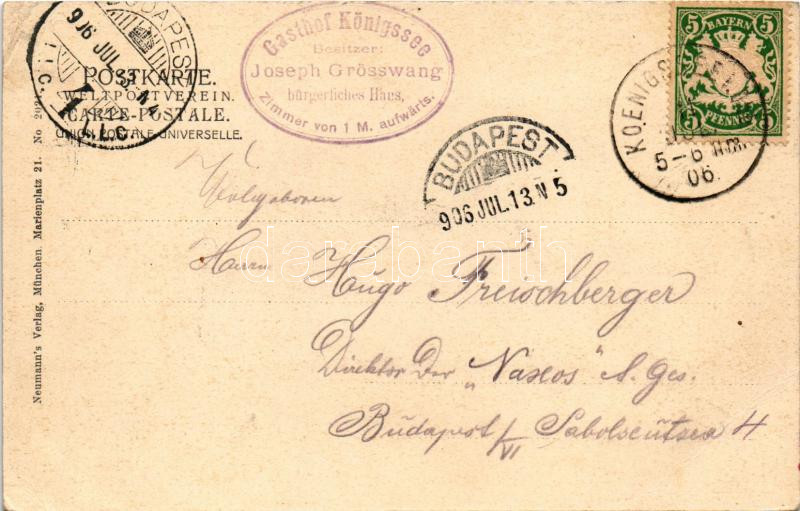 BUDAPEST
906 JUL
POSTKARTE.
WELTPOSTVEREIN.
CARTE-POSTALE.
UNION POSTALE UNIVERSELLE.
Gasthof Königssee
Besitzer:
Joseph Grösswang
bürgerliches Haus,
Zimmer von 1 M. aufwärts.
BAYERN
5 5
5 5
PFENNIG
5-6 NM.
06
BUDAPEST
906 JUL.13.N 5
Neumann's Verlag, München. Marienplatz 21. No
Wolgeboren
Herrn Hugo Freischberger
Direktor Der „Naxos" A. Ges.
Budapest /VI 4
darabanth